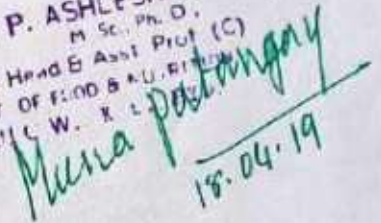 P. ASHLES
M Sc., Ph. D.
Head & Asst Prof (C)
OF FOOD &
W.
patangay
18.04.19